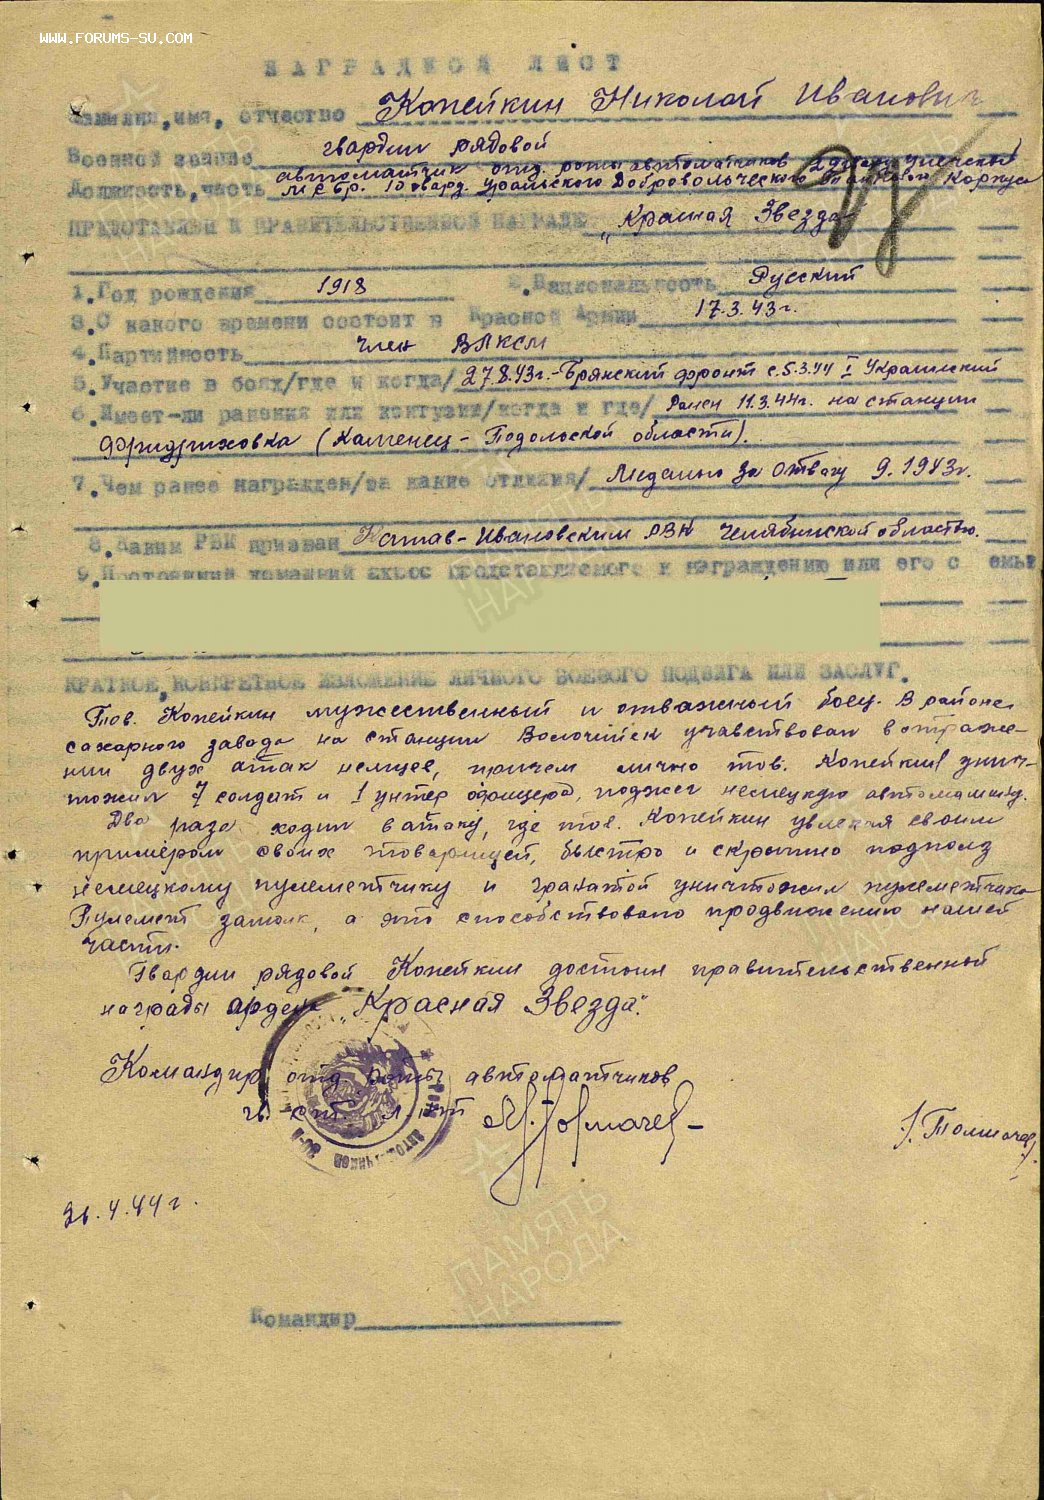 WWW.FORUMS-SU.COM
НАГРАДНОЙ ЛИСТ
Фамилия, имя, отчество Копейкин Николай Иванович
Военное звание гвардии рядовой
Должность, часть автоматчик отд. роты автоматчиков
МСбр. 10 гвард. Уральского Добровольческого Танкового Корпуса
ПРЕДСТАВЛЕН К ПРАВИТЕЛЬСТВЕННОЙ НАГРАДЕ „Красная Звезда"
1. Год рождения 1918 2. Национальность Русский
3. С какого времени состоит в Красной Армии 17.3.43г.
4. Партийность член ВЛКСМ
5. Участие в боях/где и когда/ 27.8.43г.-Брянский фронт с 5.3.44 I Украинский
6. Имеет-ли ранения или контузии/когда и где/ Ранен 11.3.44г. на станции
Фридриховка (Каменец-Подольской области).
7. Чем ранее награжден/за какие отличия/ Медалью За Отвагу 9.1943г.
8. Каким РВК призван Катав-Ивановским РВК Челябинской областью.
9. Постоянный домашний адрес представляемого к награждению или его с емьи
КРАТКОЕ, КОНКРЕТНОЕ ИЗЛОЖЕНИЕ ЛИЧНОГО БОЕВОГО ПОДВИГА ИЛИ ЗАСЛУГ.
Тов. Копейкин мужественный и отважный боец. В районе
сахарного завода на станции Волочийск учавствовал в отраже-
нии двух атак немцев, причем лично тов. Копейкин унич-
тожил 7 солдат и 1 унтер офицера, поджег немецкую автомашину.
Два раза ходил в атаку, где тов. Копейкин увлекая своим
примером своих товарищей, быстро и скрытно подполз
немецкому пулеметчику и гранатой уничтожил пулеметчика
Пулемет замолк, а это способствовало продвижению нашей
части.
Гвардии рядовой Копейкин достоин правительственной
награды ордена „Красная Звезда".
Командир отд. роты автоматчиков
гв. ст. л-нт
/Толмачев/
4.44г.
Командир
ПАМЯТЬ
НАРОДА